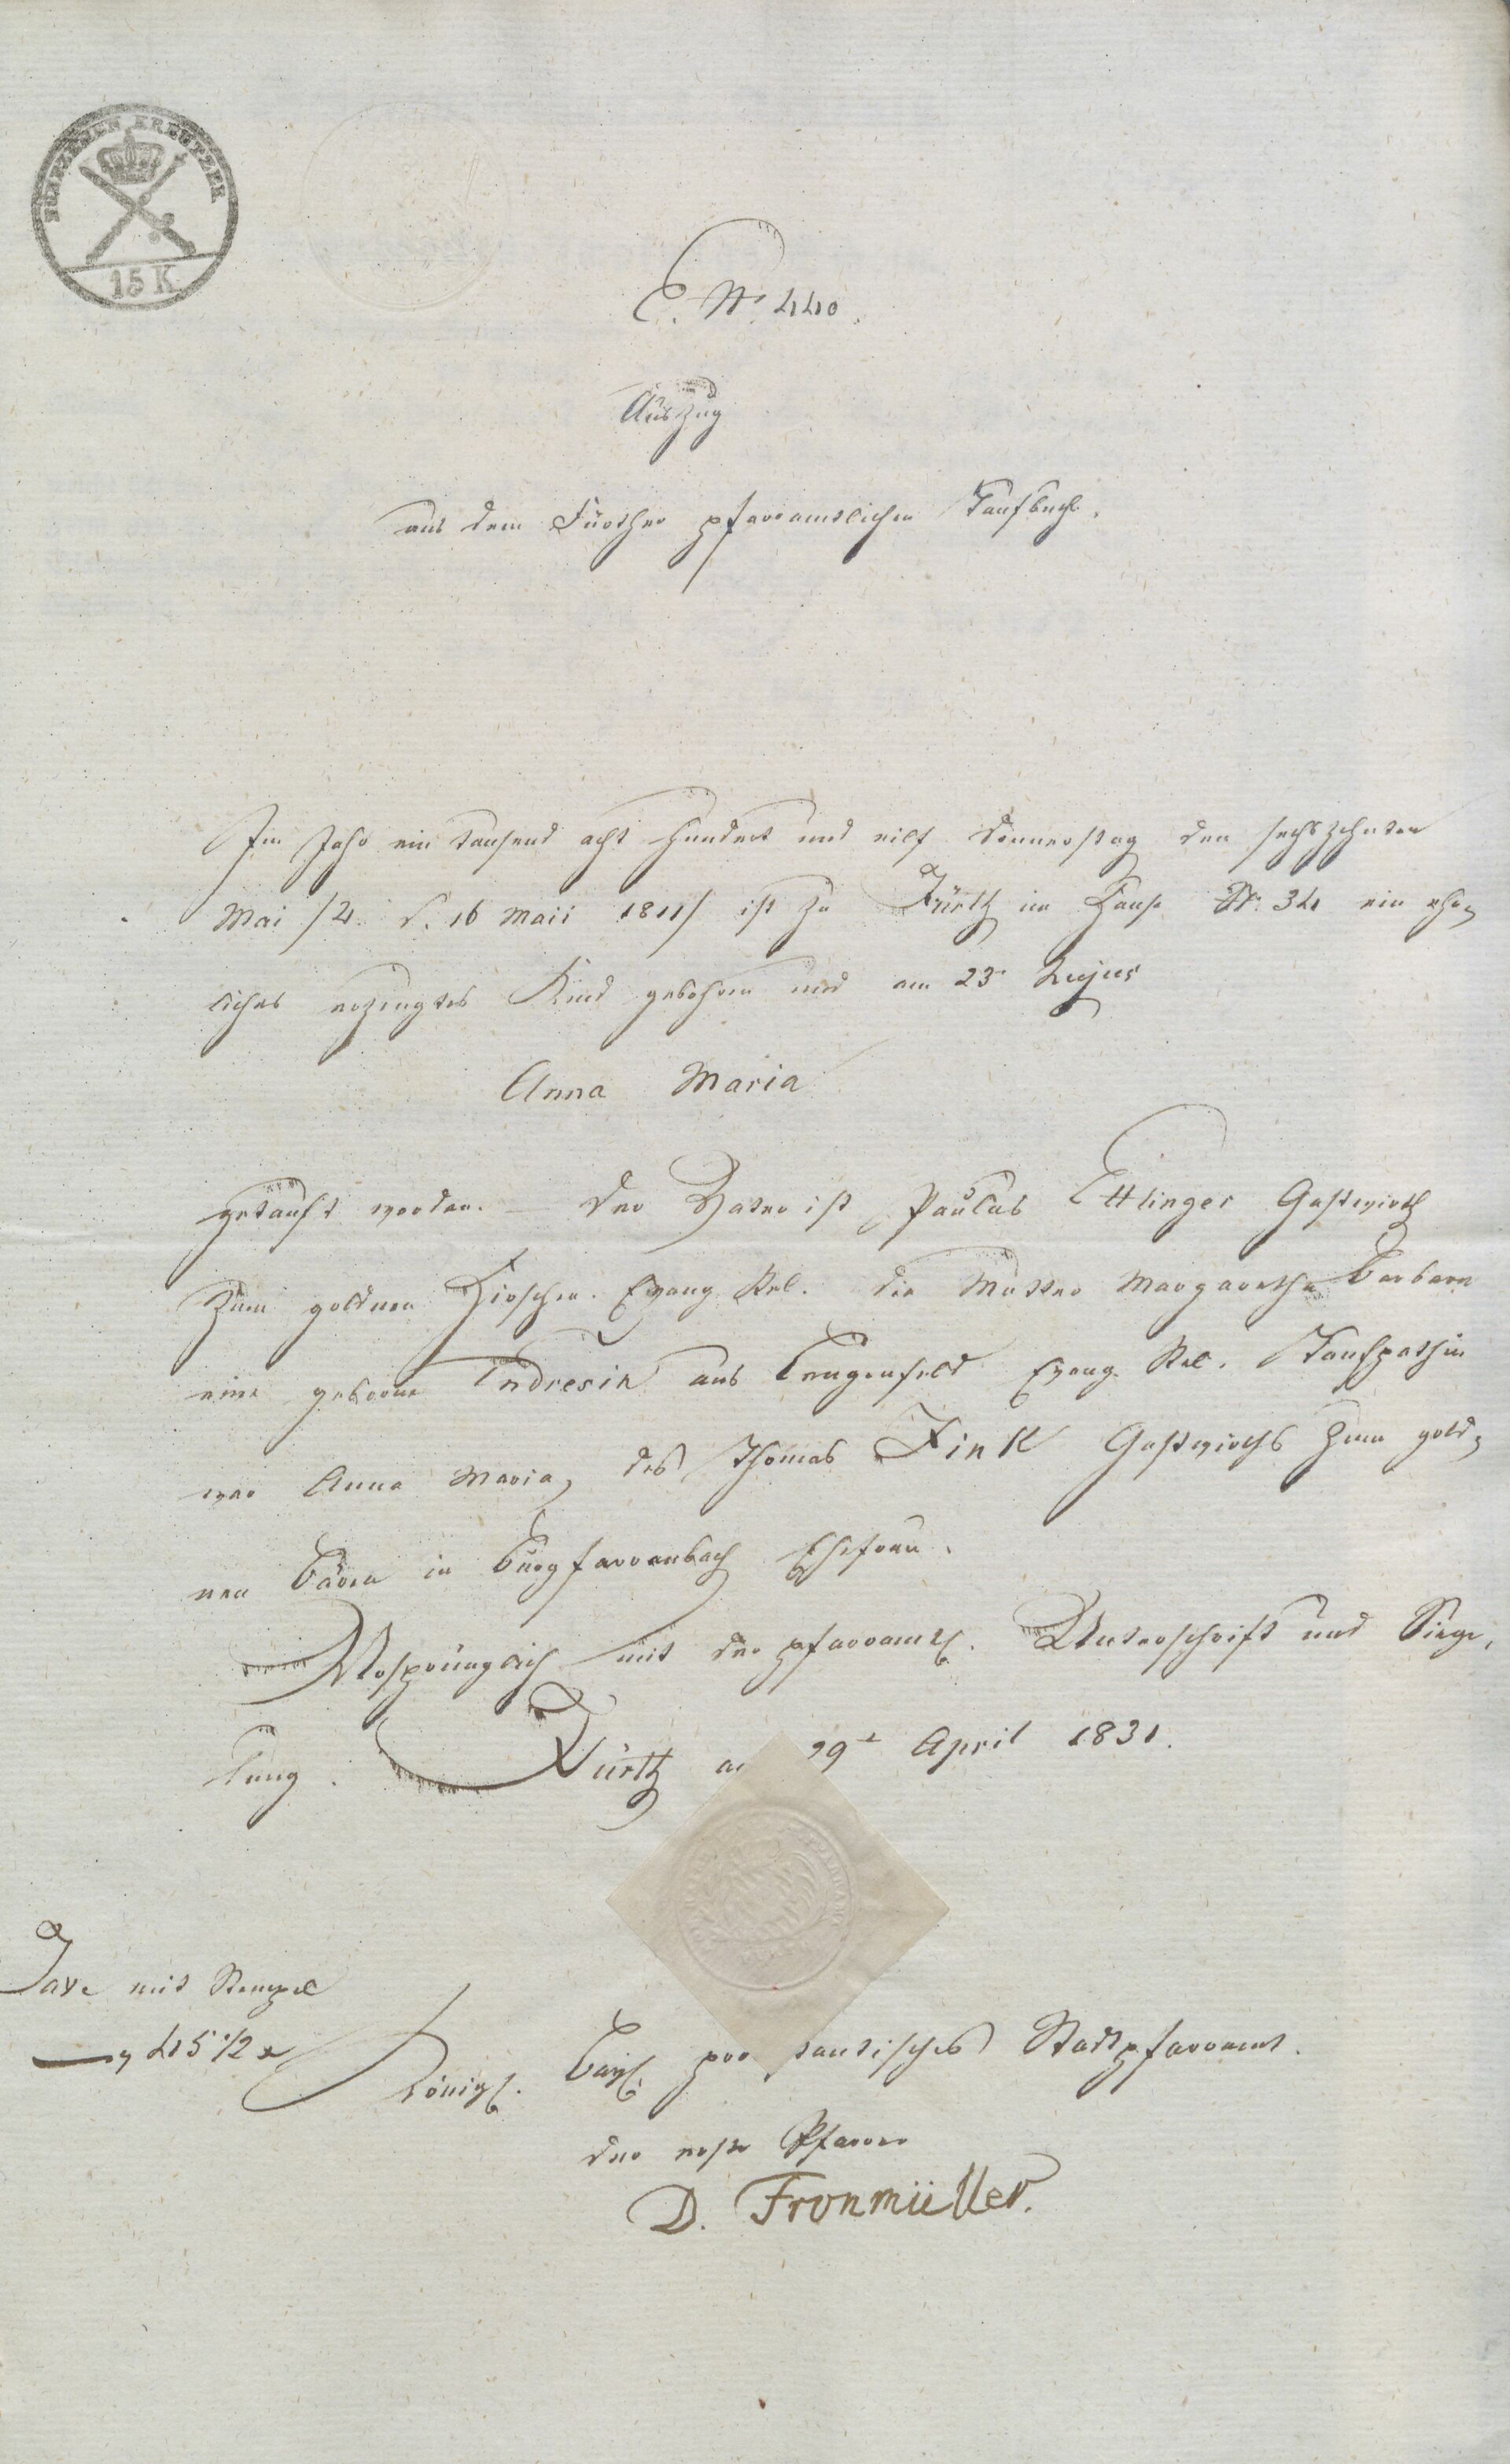 FÜNFZEHEN KREUTZER
15 K
E. No. 440.
Auszug
aus dem Fürther pfarramtlichen Taufbuche.
Im Jahr ein tausend acht hundert und eilf Donnerstag den sechszehnten
Mai /: d. 16 Maii 1811/ ist zu Fürth im Hause Nr. 34 ein ehe-
liches erzeugtes Kind gebohren und am 23. hujus
Anna Maria
getauft worden. – Der Vater ist Paulus Ettlinger Gastwirth
zum goldnen Hirschen. Evang. Rel. die Mutter Margaretha Barbara
eine geborne Endresin aus Langenfeld Evang. Rel. Taufpathin
war Anna Maria, des Thomas Fink Gastwirths zum gold-
nen Bären in Burgfarrnbach Ehefrau.
Ursprünglich mit der pfarramtl. Unterschrift und Siege-
lung. Fürth am 29t April 1831.
Taxe mit Stempel
45 1/2 x
Königl. Bayl. protestantisches Stadtpfarramt.
der erste Pfarrer
D. Fronmüller.